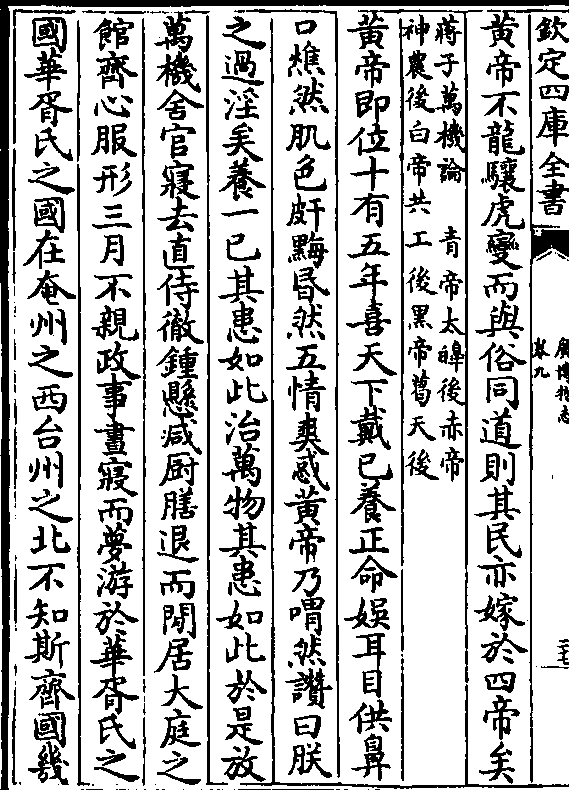 欽定四庫全書
廣博物志
卷九
黃帝不龍驤虎變而與俗同道則其民亦嫁於四帝矣
蔣子萬機論　青帝太皞後赤帝
神農後白帝共工後黑帝葛天後
黃帝即位十有五年喜天下戴已養正命娛耳目供鼻
口燋然肌色皯黣昏然五情爽惑黃帝乃喟然讚曰朕
之過淫矣養一已其患如此治萬物其患如此於是放
萬機舍官寢去直侍徹鍾懸減厨膳退而閒居大庭之
館齊心服形三月不親政事晝寢而夢游於華胥氏之
國華胥氏之國在奄州之西台州之北不知斯齊國幾